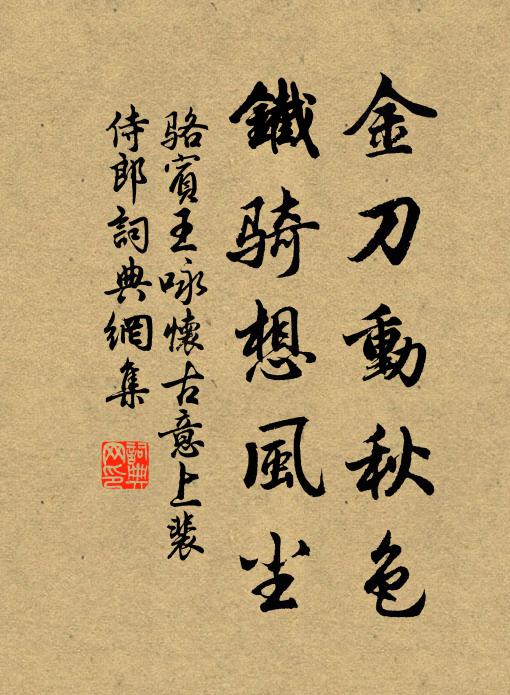 金刀動秋色
鐵騎想風尘
骆賓王咏懷古意上裴
侍郎詞典網集
詞典网印